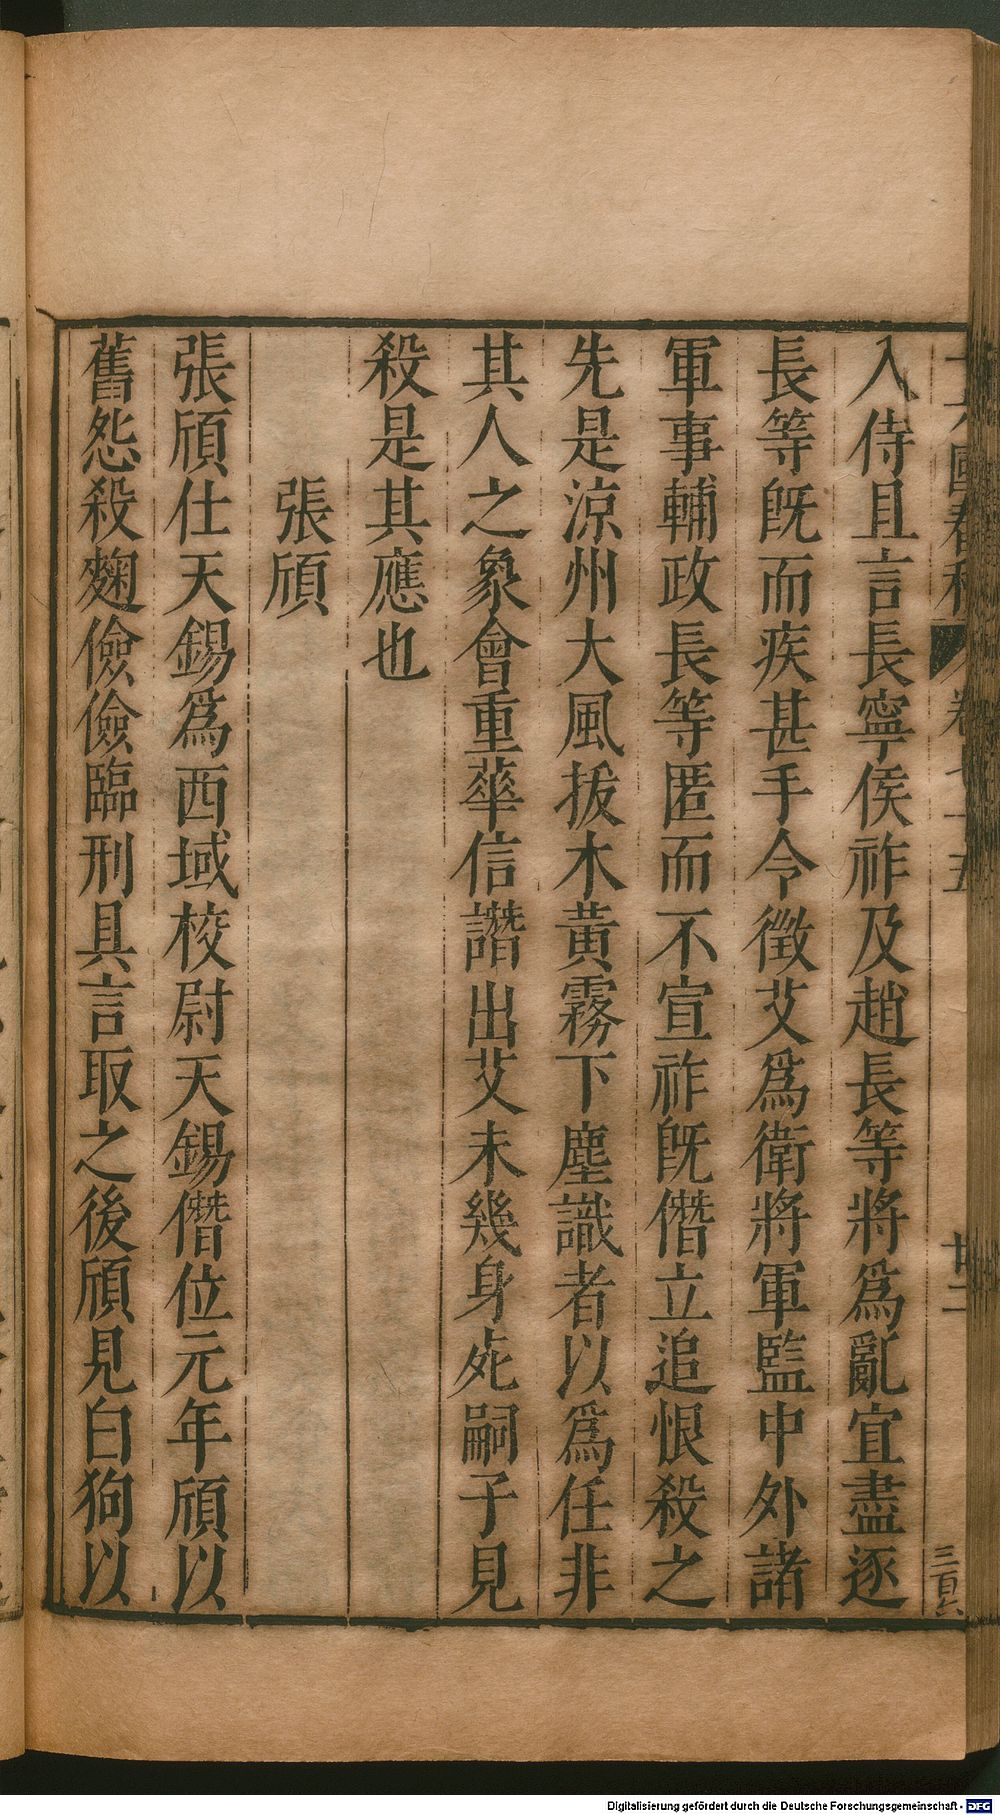 入侍且言長寧侯祚及趙長等將爲亂宜盡逐
長等旣而疾甚手令徵艾爲衛將軍監中外諸
軍事輔政長等匿而不宣祚旣僭立追恨殺之
先是涼州大風拔木黃霧下塵識者以爲任非
其人之象會重華信譖出艾未幾身死嗣子見
殺是其應也
張頎
張頎仕天錫爲西域校尉天錫僭位元年頎以
舊怨殺麴儉儉臨刑具言取之後頎見白狗以
Digitalisierung gefördert durch die Deutsche Forschungsgemeinschaft - DFG